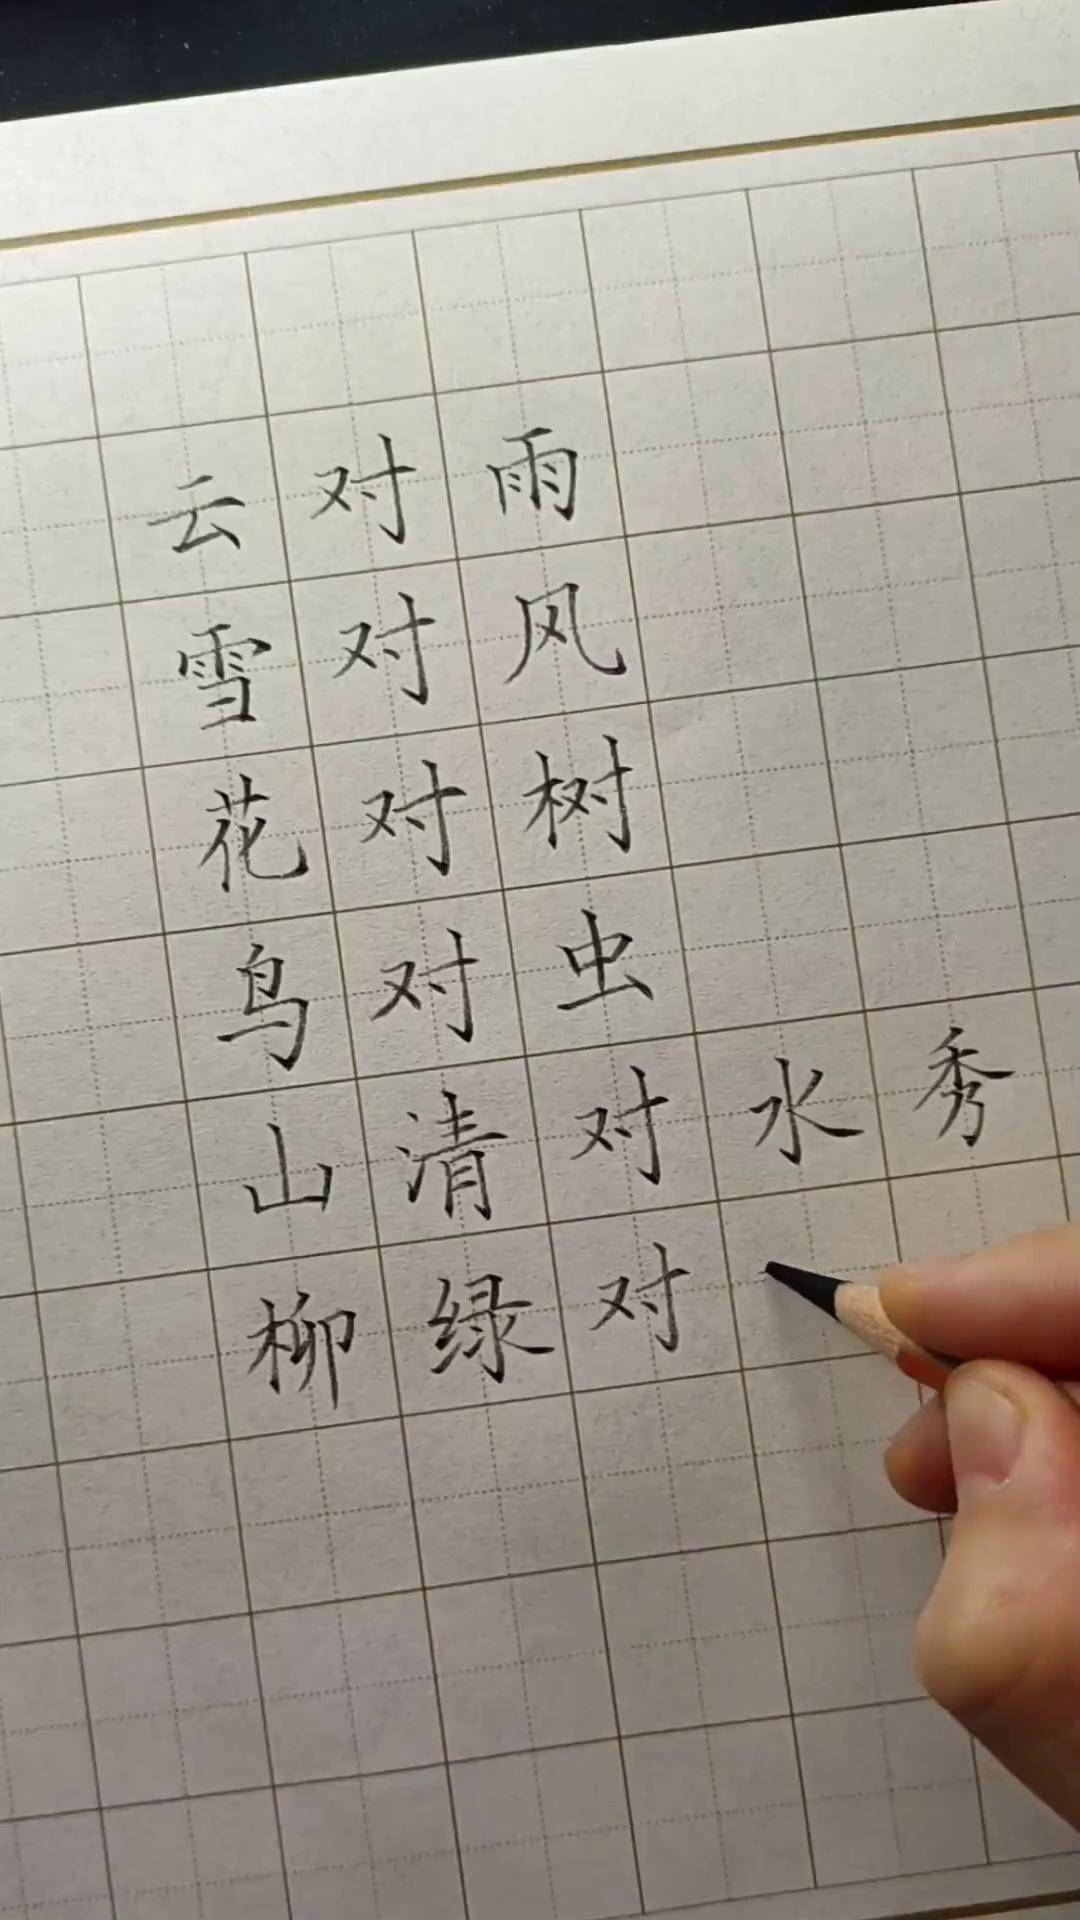 云对雨
雪对风
花对树
鸟对虫
山清对水秀
柳绿对